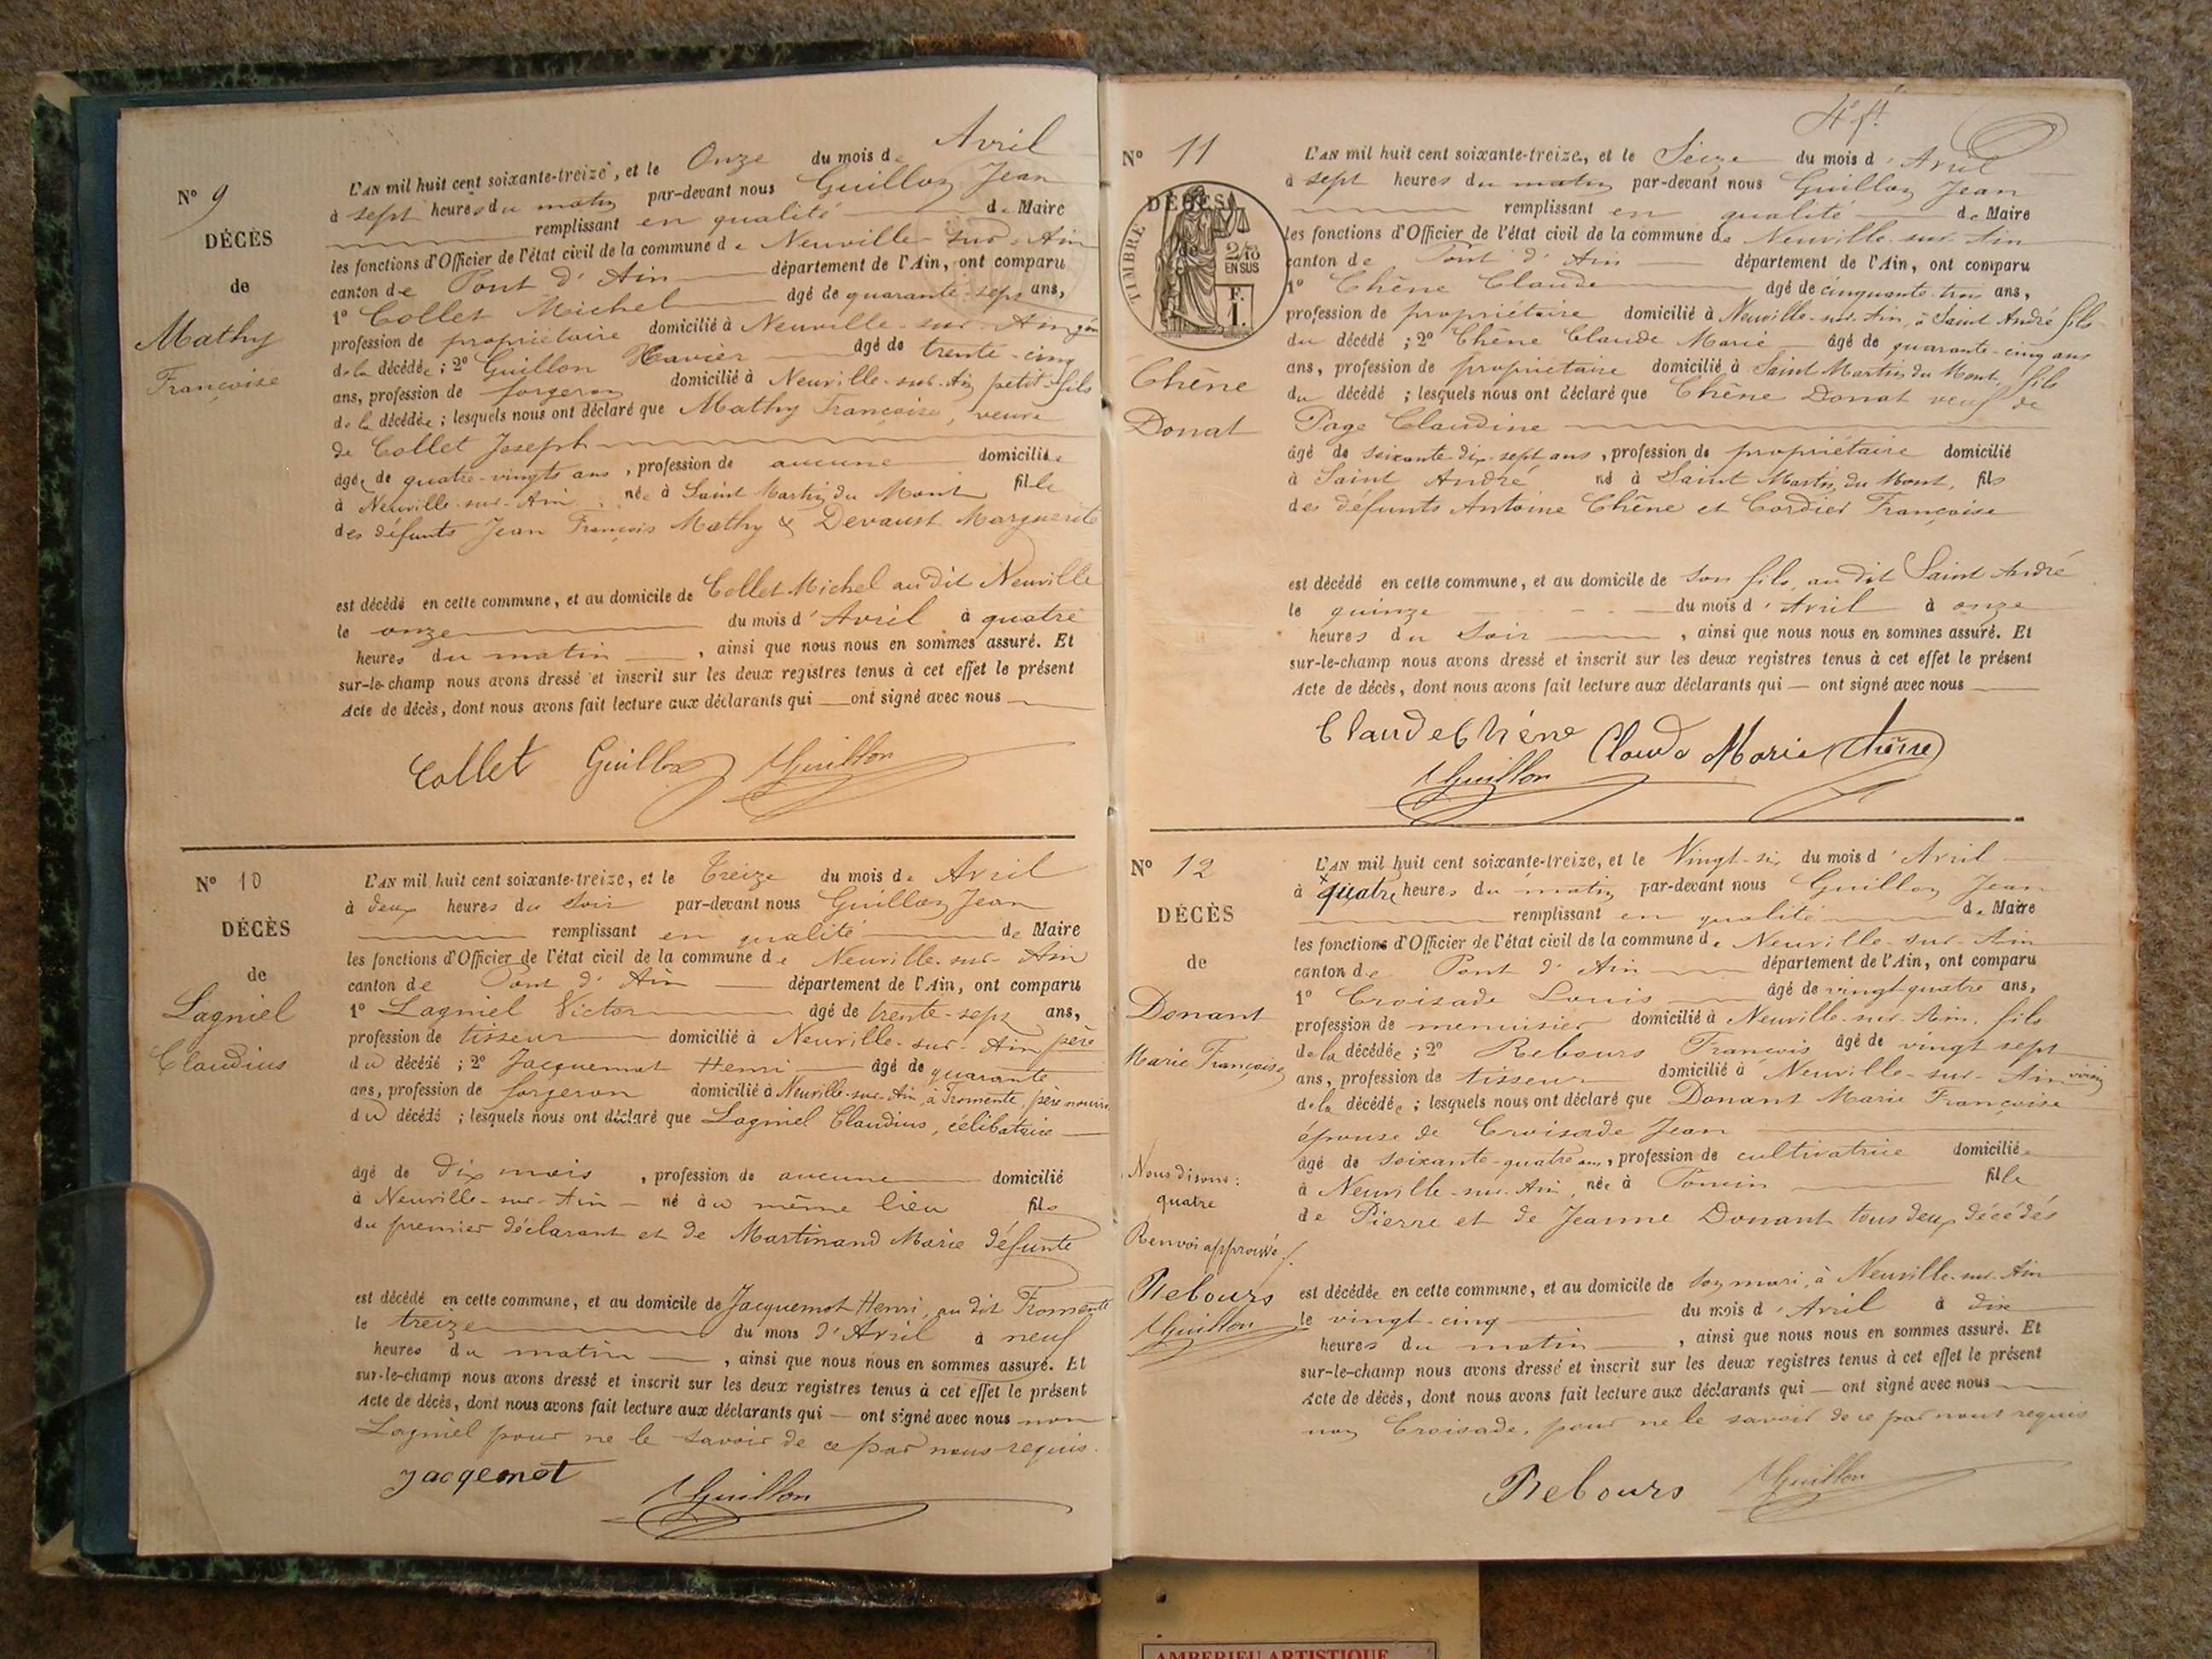 N° 9
DÉCÈS
de
Mathy
Françoise
L'AN mil huit cent soixante-treize, et le Onze du mois d Avril
à sept heures du matin par-devant nous Guillon Jean
remplissant en qualité de Maire
les fonctions d'Officier de l'état civil de la commune de Neuville-sur-Ain
canton de Pont d'Ain département de l'Ain, ont comparu
1° Collet Michel âgé de quarante-sept ans,
profession de propriétaire domicilié à Neuville-sur-Ain
de la décédée ; 2° Guillon Xavier âgé de trente-cinq
ans, profession de forgeron domicilié à Neuville-sur-Ain petit-fils
de la décédée ; lesquels nous ont déclaré que Mathy Françoise, veuve
de Collet Joseph
âgée de quatre-vingts ans, profession de aucune domiciliée
à Neuville-sur-Ain née à Saint Martin du Mont fille
des défunts Jean François Mathy & Devaust Marguerite
est décédé en cette commune, et au domicile de Collet Michel au dit Neuville
le onze du mois d'Avril à quatre
heures du matin, ainsi que nous nous en sommes assuré. Et
sur-le-champ nous avons dressé et inscrit sur les deux registres tenus à cet effet le présent
Acte de décès, dont nous avons fait lecture aux déclarants qui ont signé avec nous
Collet Guillon Guillon
N° 10
DÉCÈS
de
Lagniel
Claudius
L'AN mil huit cent soixante-treize, et le Treize du mois de Avril
à deux heures du soir par-devant nous Guillon Jean
remplissant en qualité de Maire
les fonctions d'Officier de l'état civil de la commune de Neuville-sur-Ain
canton de Pont d'Ain département de l'Ain, ont comparu
1° Lagniel Victor âgé de trente-sept ans,
profession de tisseur domicilié à Neuville-sur-Ain père
du décédé ; 2° Jacquemot Henri âgé de quarante
ans, profession de forgeron domicilié à Neuville-sur-Ain, à Fromente, père nourri
du décédé ; lesquels nous ont déclaré que Lagniel Claudius, célibataire
âgé de dix mois, profession de aucune domicilié
à Neuville-sur-Ain né au même lieu fils
du premier déclarant et de Martinand Marie défunte
est décédé en cette commune, et au domicile de Jacquemot Henri, au dit Fromente
le treize du mois d'Avril à neuf
heures du matin, ainsi que nous nous en sommes assuré. Et
sur-le-champ nous avons dressé et inscrit sur les deux registres tenus à cet effet le présent
Acte de décès, dont nous avons fait lecture aux déclarants qui ont signé avec nous non
Lagniel pour ne le savoir de ce par nous requis.
Jacqemot Guillon
N° 11
DÉCÈS
de
TIMBRE
2/10
EN SUS
F.
1.
Chêne
Donat
L'AN mil huit cent soixante-treize, et le Seize du mois d'Avril
à sept heures du matin par-devant nous Guillon Jean
remplissant en qualité de Maire
les fonctions d'Officier de l'état civil de la commune de Neuville-sur-Ain
canton de Pont d'Ain département de l'Ain, ont comparu
1° Chêne Claude âgé de cinquante-trois ans,
profession de propriétaire domicilié à Neuville-sur-Ain, à Saint André fils
du décédé ; 2° Chêne Claude Marie âgé de quarante-cinq ans
ans, profession de propriétaire domicilié à Saint Martin du Mont, fils
du décédé ; lesquels nous ont déclaré que Chêne Donat veuf de
Page Claudine
âgé de soixante-dix-sept ans, profession de propriétaire domicilié
à Saint André né à Saint Martin du Mont, fils
des défunts Antoine Chêne et Cordier Françoise
est décédé en cette commune, et au domicile de son fils, au dit Saint André
le quinze du mois d'Avril à onze
heures du soir, ainsi que nous nous en sommes assuré. Et
sur-le-champ nous avons dressé et inscrit sur les deux registres tenus à cet effet le présent
Acte de décès, dont nous avons fait lecture aux déclarants qui ont signé avec nous
Claude Chêne Claude Marie Chêne
Guillon
N° 12
DÉCÈS
de
Donant
Marie Françoise
Nous disons :
quatre
Renvoi approuvé
Rebours
Guillon
L'AN mil huit cent soixante-treize, et le Vingt-six du mois d'Avril
à quatre heures du matin par-devant nous Guillon Jean
remplissant en qualité de Maire
les fonctions d'Officier de l'état civil de la commune de Neuville-sur-Ain
canton de Pont d'Ain département de l'Ain, ont comparu
1° Croisade Louis âgé de vingt quatre ans,
profession de menuisier domicilié à Neuville-sur-Ain, fils
de la décédée ; 2° Rebours François âgé de vingt sept
ans, profession de tisseur domicilié à Neuville-sur-Ain voisin
de la décédée ; lesquels nous ont déclaré que Donant Marie Françoise
épouse de Croisade Jean
âgé de soixante-quatre ans, profession de cultivatrice domiciliée
à Neuville-sur-Ain, née à Poncin fille
de Pierre et de Jeanne Donant tous deux décédés
est décédée en cette commune, et au domicile de son mari, à Neuville-sur-Ain
le vingt-cinq du mois d'Avril à dix
heures du matin, ainsi que nous nous en sommes assuré. Et
sur-le-champ nous avons dressé et inscrit sur les deux registres tenus à cet effet le présent
Acte de décès, dont nous avons fait lecture aux déclarants qui ont signé avec nous
non Croisade, pour ne le savoir de ce par nous requis
Rebours Guillon
AMBERIEU ARTISTIQUE